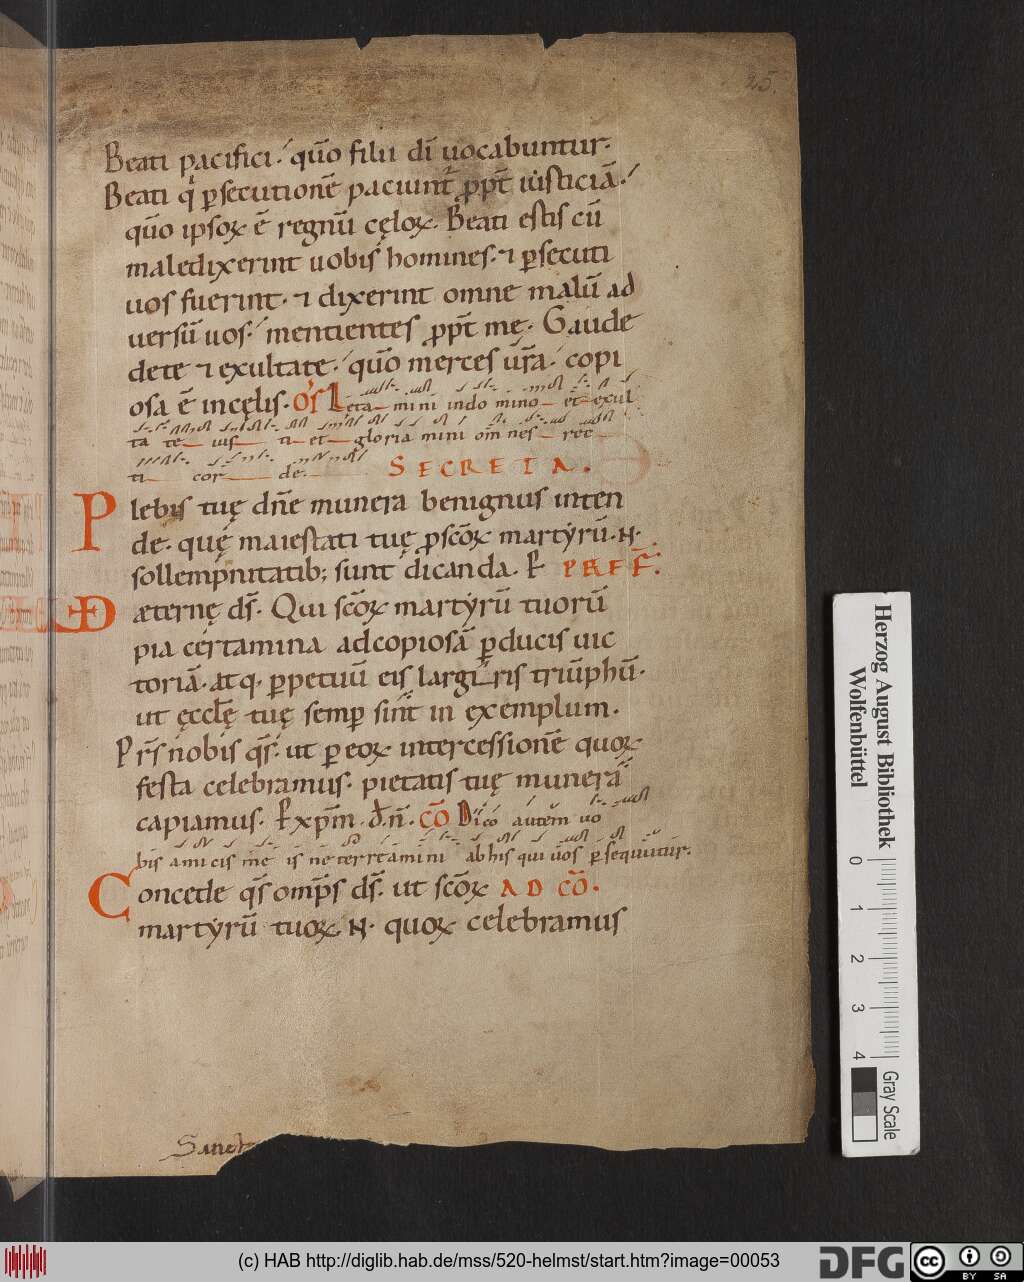 25.
Beati pacifici. quō filii dī uocabuntur.
Beati q̇ ꝑsecutionē paciunt̄ ꝓpt̄ iusticiā.
quō ipsoꝝ ē regnū cęloꝝ. Beati estis cū
maledixerint uobis homines. ⁊ ꝑsecuti
uos fuerint. ⁊ dixerint omne malū ad
uersū uos. mentientes ꝓpt̄ mę. Gaude
dete ⁊ exultate. quō merces ur̄a copi
osa ē incęlis. Of̄ Leta mini indo mino et exul
ta te uis ti et gloria mini om̄ nes rec
ti cor de. SECRETA.
Plebis tuę dn̄e munera benignus inten
de. quę maiestati tuę ꝓ scōꝝ martyrū .N.
sollempnitatib; sunt dicanda. P̄ PREF̄.
VD æternę ds̄. Qui scōꝝ martyrū tuorū
pia certamina adcopiosā ꝑducis uic
toriā. atq. ꝑpetuū eis largiris triūphū.
ut ęccłę tuę semꝑ sint̄ in exemplum.
Pr̄s nobis qs̄. ut ꝑ eoꝝ intercessionē quoꝝ
festa celebramus. pietatis tuę munera
capiamus. P̄ xpm̄ dn̄. Cō Dico autem uo
bis amicis me is ne terre amini abhis qui uos ꝑsequuntur.
Concede qs̄ omp̄s ds̄. ut scōꝝ AD CŌ.
martyrū tuoꝝ .N. quoꝝ celebramus
Sanct
Herzog August Bibliothek
Wolfenbüttel
0 1 2 3 4
Gray Scale
(c) HAB http://diglib.hab.de/mss/520-helmst/start.htm?image=00053
DFG
cc BY SA